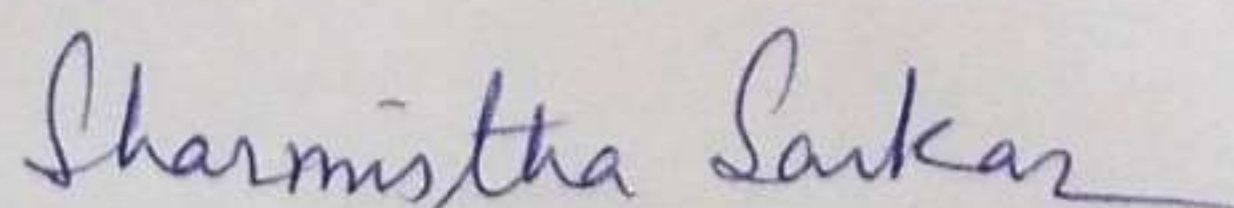 Sharmistha Sarkar